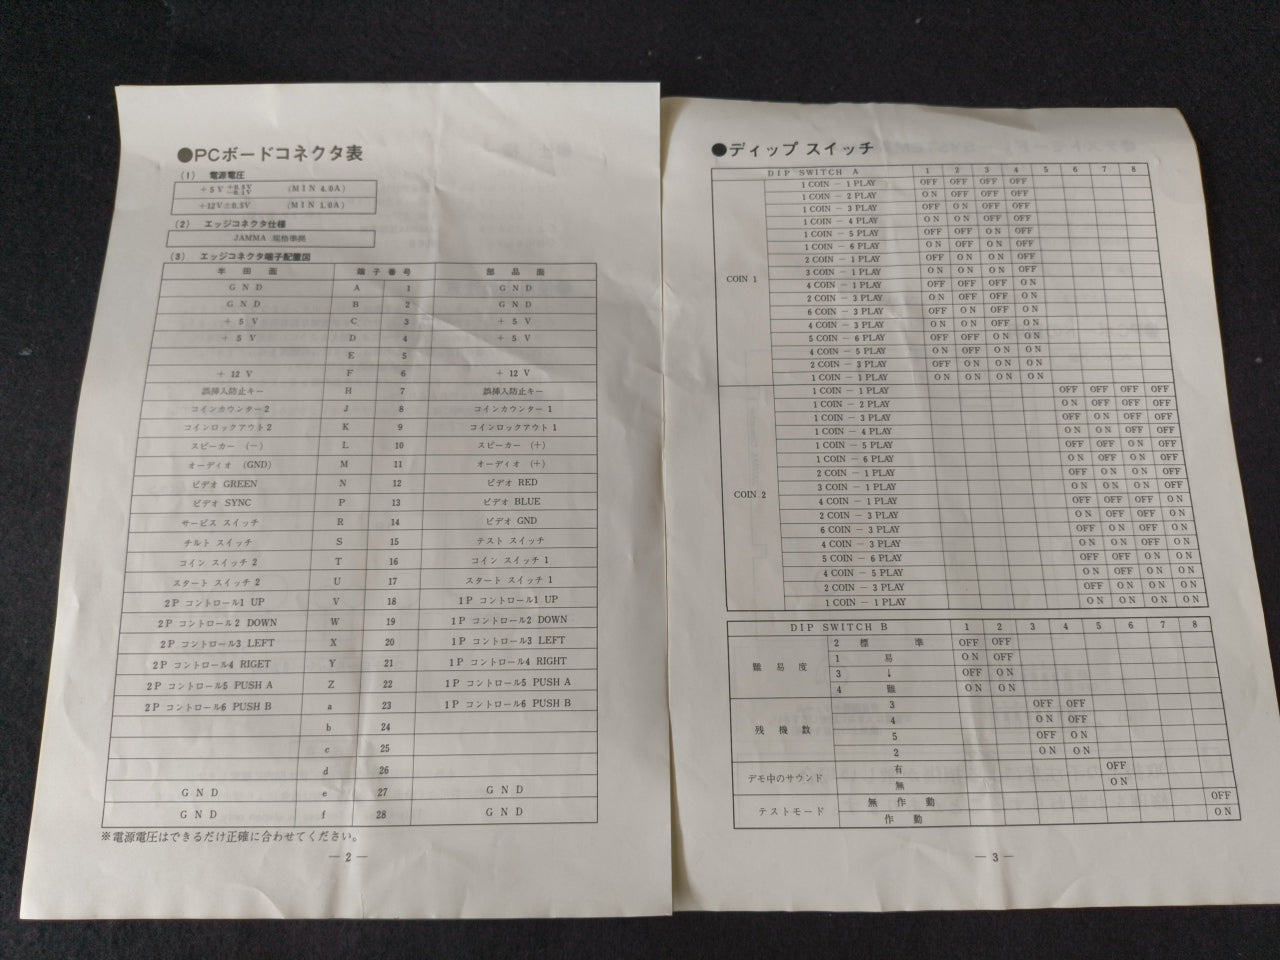 ●PCボードコネクタ表
(1) 電源電圧
+5V +0.5V −0.1V (MIN 4.0A)
+12V±0.5V (MIN 1.0A)
(2) エッジコネクタ仕様
JAMMA 規格準拠
(3) エッジコネクタ端子配置図
半田面 端子番号 部品面
GND A 1 GND
GND B 2 GND
+5V C 3 +5V
+5V D 4 +5V
E 5
+12V F 6 +12V
誤挿入防止キー H 7 誤挿入防止キー
コインカウンター2 J 8 コインカウンター1
コインロックアウト2 K 9 コインロックアウト1
スピーカー (−) L 10 スピーカー (+)
オーディオ (GND) M 11 オーディオ (+)
ビデオ GREEN N 12 ビデオ RED
ビデオ SYNC P 13 ビデオ BLUE
サービス スイッチ R 14 ビデオ GND
チルト スイッチ S 15 テスト スイッチ
コイン スイッチ 2 T 16 コイン スイッチ 1
スタート スイッチ 2 U 17 スタート スイッチ 1
2P コントロール1 UP V 18 1P コントロール1 UP
2P コントロール2 DOWN W 19 1P コントロール2 DOWN
2P コントロール3 LEFT X 20 1P コントロール3 LEFT
2P コントロール4 RIGET Y 21 1P コントロール4 RIGHT
2P コントロール5 PUSH A Z 22 1P コントロール5 PUSH A
2P コントロール6 PUSH B a 23 1P コントロール6 PUSH B
b 24
c 25
d 26
GND e 27 GND
GND f 28 GND
※電源電圧はできるだけ正確に合わせてください。
— 2 —
●ディップ スイッチ
DIP SWITCH A 1 2 3 4 5 6 7 8
COIN 1
1 COIN − 1 PLAY OFF OFF OFF OFF
1 COIN − 2 PLAY ON OFF OFF OFF
1 COIN − 3 PLAY OFF ON OFF OFF
1 COIN − 4 PLAY ON ON OFF OFF
1 COIN − 5 PLAY OFF OFF ON OFF
1 COIN − 6 PLAY ON OFF ON OFF
2 COIN − 1 PLAY OFF ON ON OFF
3 COIN − 1 PLAY ON ON ON OFF
4 COIN − 1 PLAY OFF OFF OFF ON
2 COIN − 3 PLAY ON OFF OFF ON
6 COIN − 3 PLAY OFF ON OFF ON
4 COIN − 3 PLAY ON ON OFF ON
5 COIN − 6 PLAY OFF OFF ON ON
4 COIN − 5 PLAY ON OFF ON ON
2 COIN − 3 PLAY OFF ON ON ON
1 COIN − 1 PLAY ON ON ON ON
COIN 2
1 COIN − 1 PLAY OFF OFF OFF OFF
1 COIN − 2 PLAY ON OFF OFF OFF
1 COIN − 3 PLAY OFF ON OFF OFF
1 COIN − 4 PLAY ON ON OFF OFF
1 COIN − 5 PLAY OFF OFF ON OFF
1 COIN − 6 PLAY ON OFF ON OFF
2 COIN − 1 PLAY OFF ON ON OFF
3 COIN − 1 PLAY ON ON ON OFF
4 COIN − 1 PLAY OFF OFF OFF ON
2 COIN − 3 PLAY ON OFF OFF ON
6 COIN − 3 PLAY OFF ON OFF ON
4 COIN − 3 PLAY ON ON OFF ON
5 COIN − 6 PLAY OFF OFF ON ON
4 COIN − 5 PLAY ON OFF ON ON
2 COIN − 3 PLAY OFF ON ON ON
1 COIN − 1 PLAY ON ON ON ON
DIP SWITCH B 1 2 3 4 5 6 7 8
難易度
2 標準 OFF OFF
1 易 ON OFF
3 ↓ OFF ON
4 難 ON ON
残機数
3 OFF OFF
4 ON OFF
5 OFF ON
2 ON ON
デモ中のサウンド
有 OFF
無 ON
テストモード
無作動 OFF
作動 ON
— 3 —